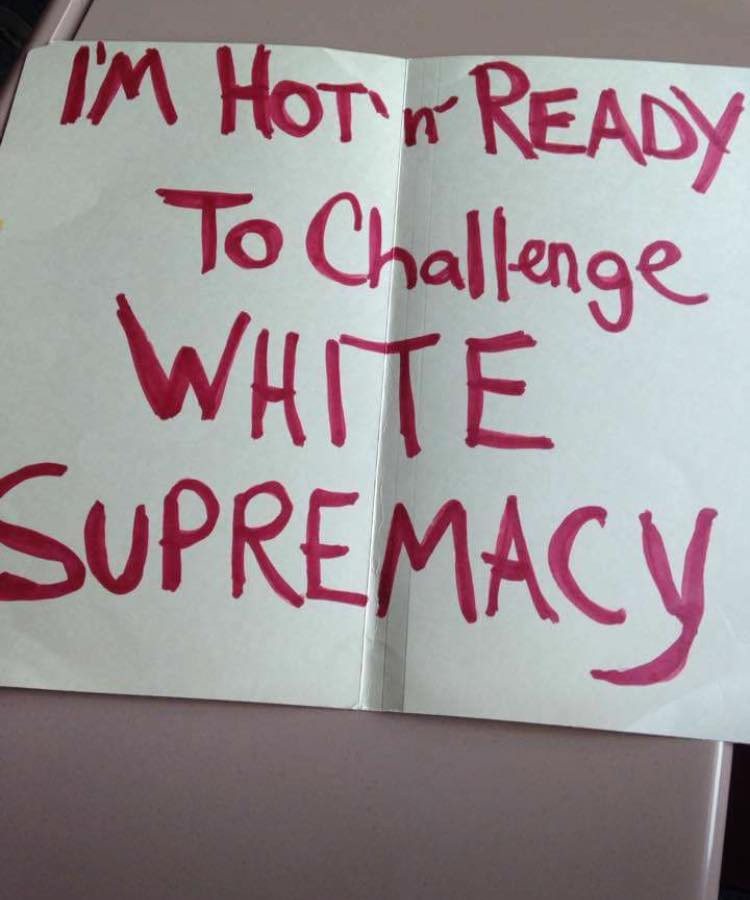 I'M HOT 'n' READY
To Challenge
WHITE
SUPREMACY